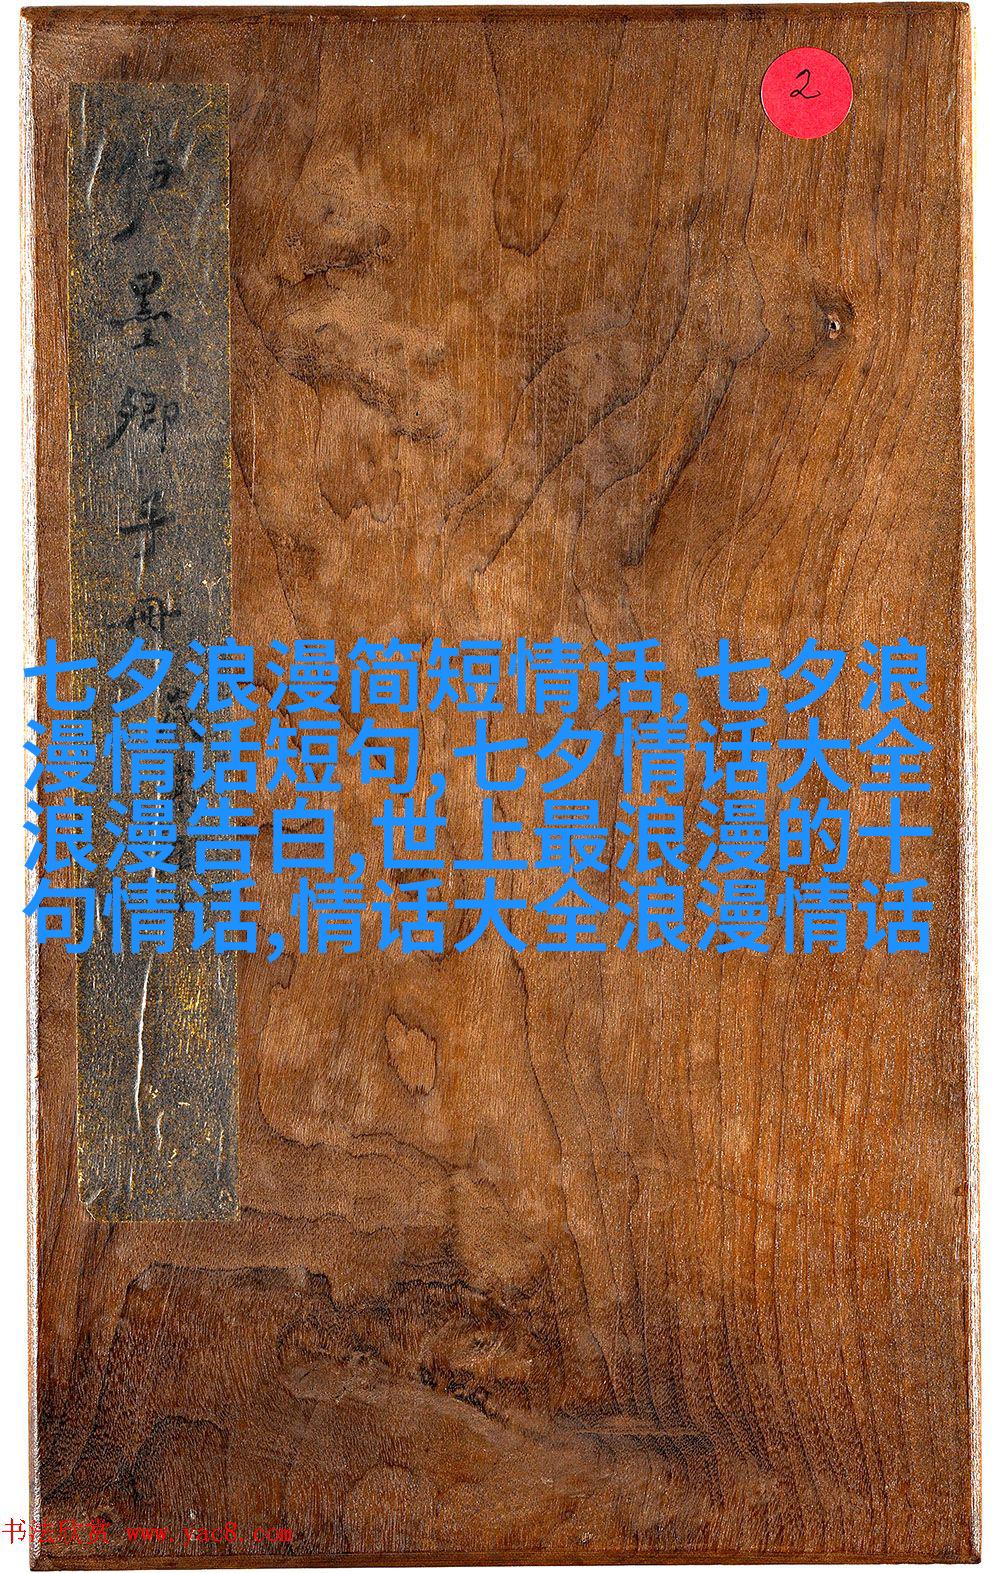 2
墨卿手冊
七夕浪漫简短情话,七夕浪
漫情话短句,七夕情话大全
浪漫告白,世上最浪漫的十
句情话,情话大全浪漫情话
书法欣赏 www.yac8.com